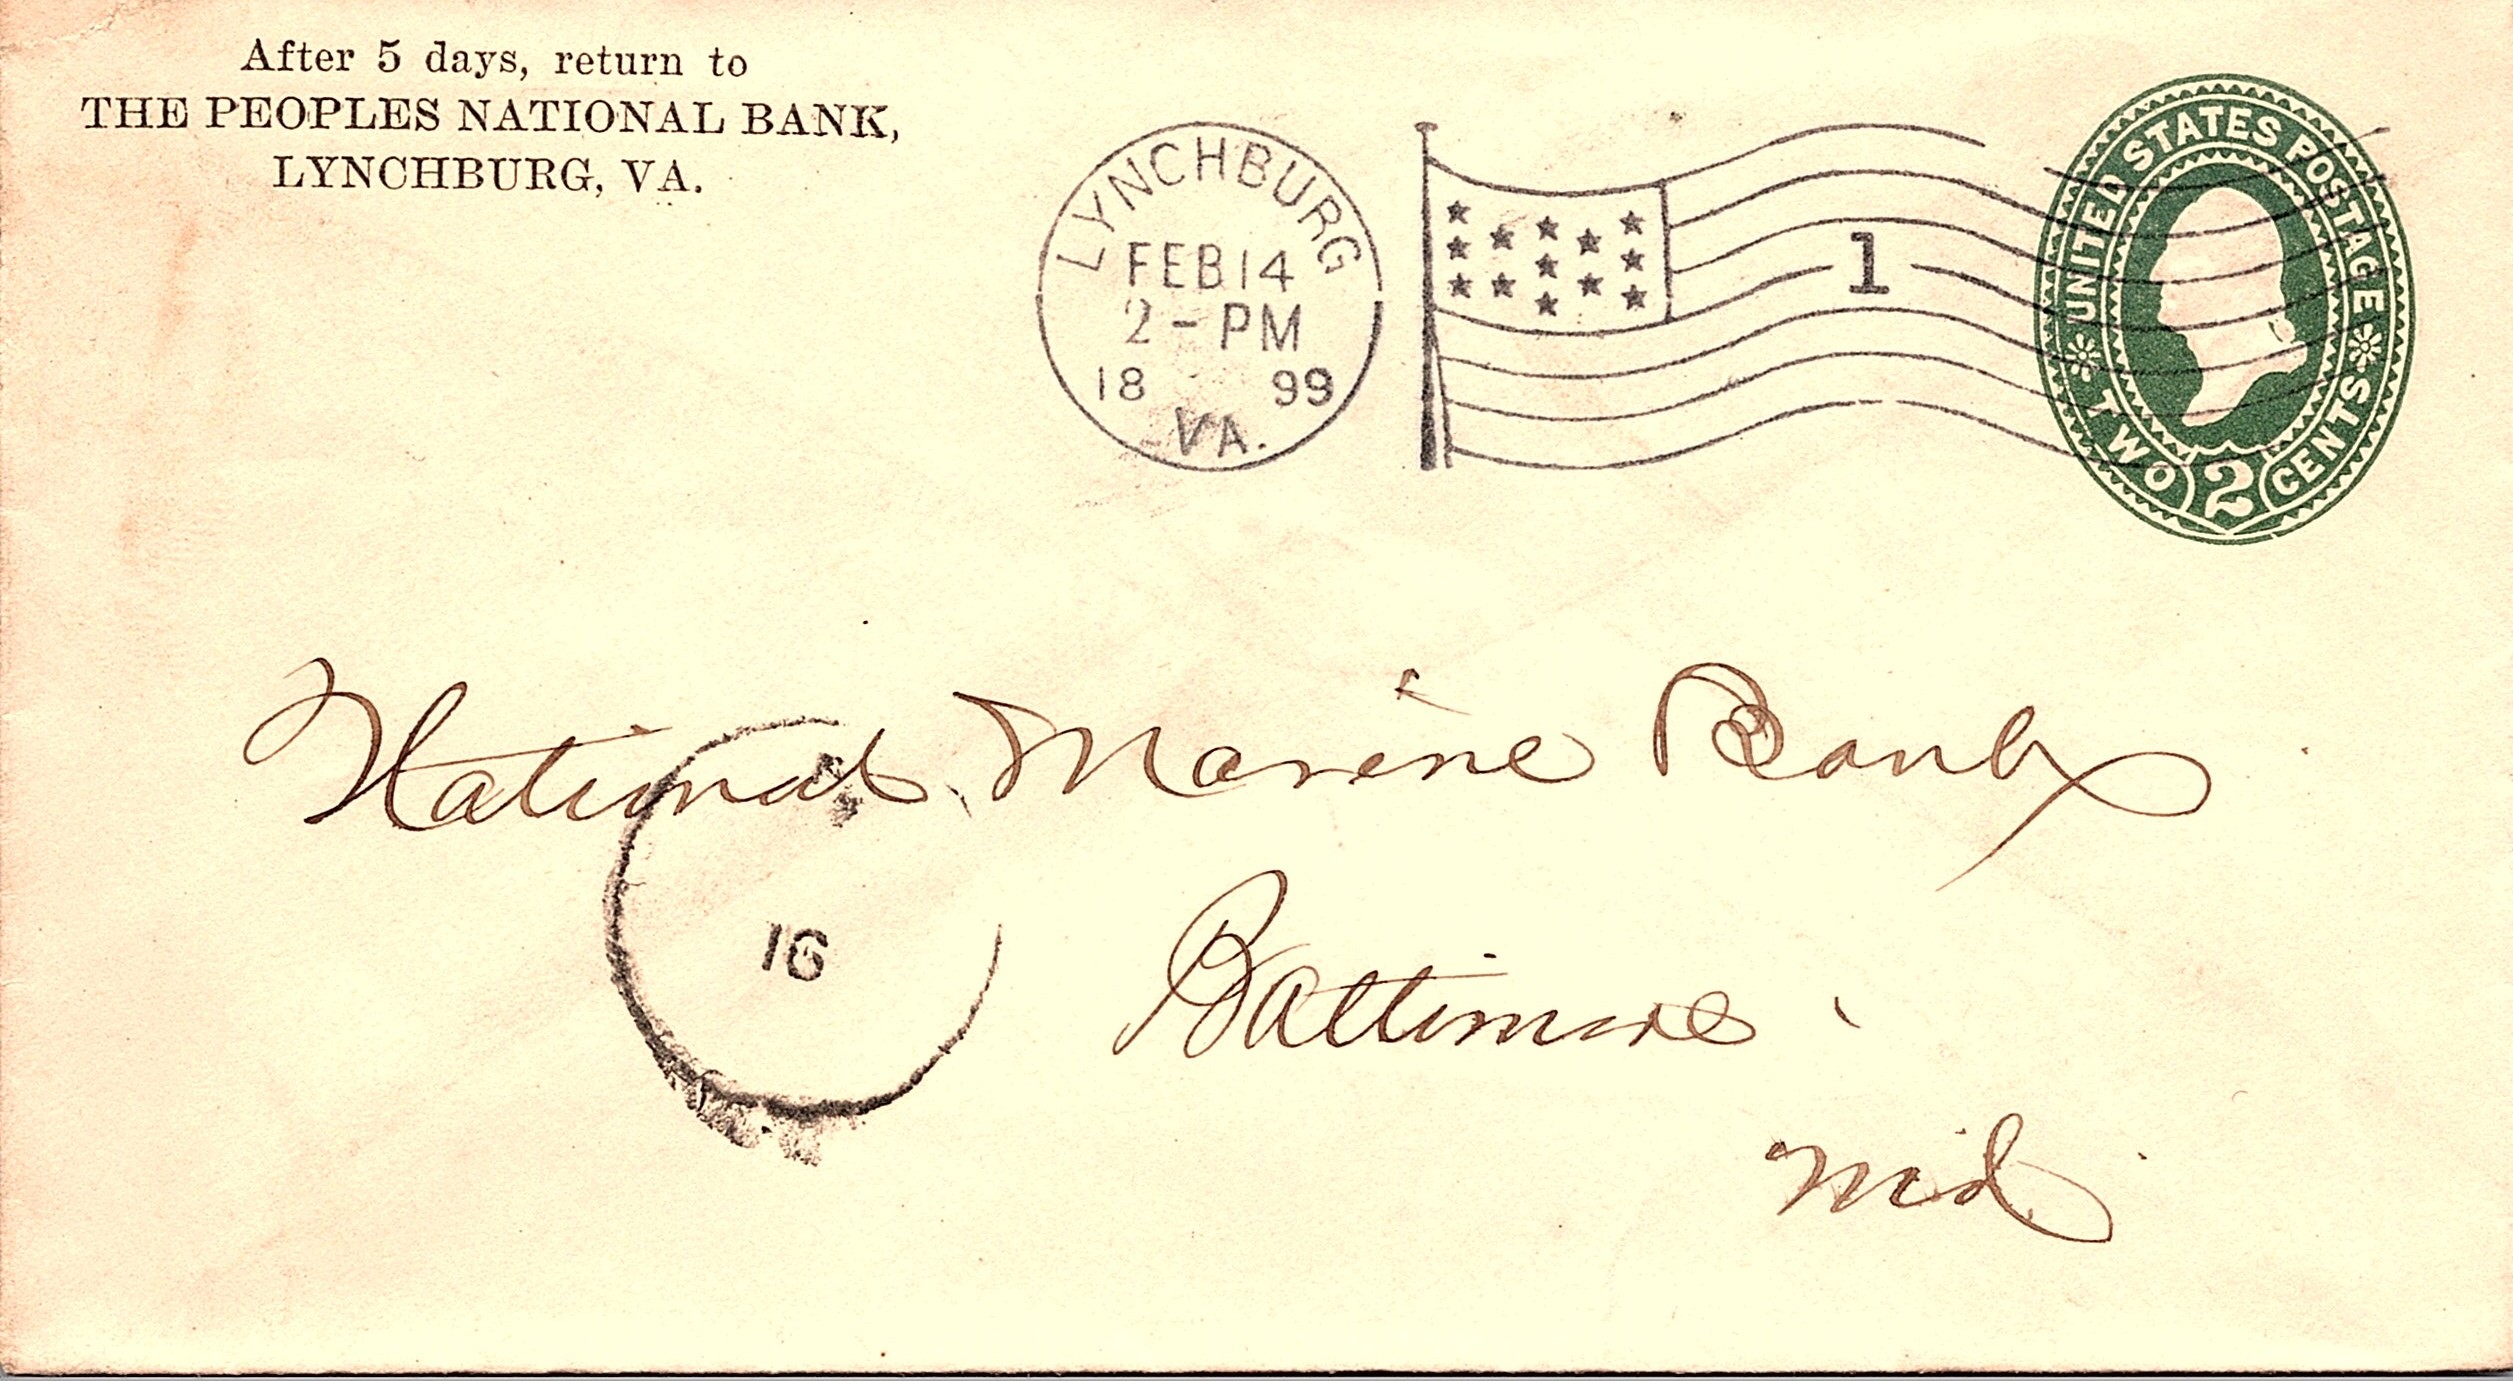 After 5 days, return to
THE PEOPLES NATIONAL BANK,
LYNCHBURG, VA.
LYNCHBURG
FEB 14
2 - PM
18 99
VA.
1
UNITED STATES POSTAGE
TWO 2 CENTS
National Marine Bank
16
Baltimore
Md